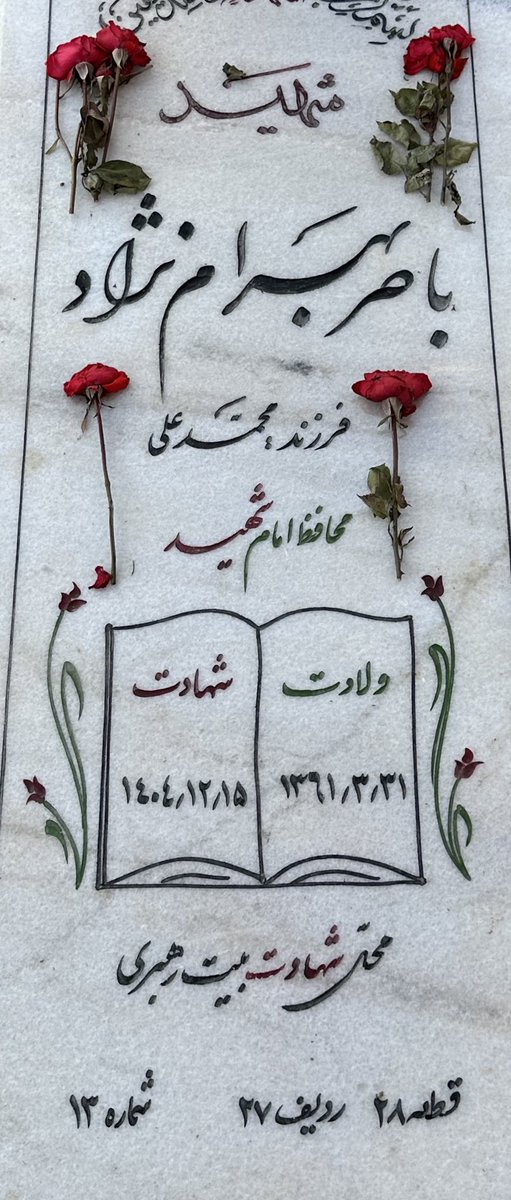 شهید
باصر بهرام نژاد
فرزند محمد علی
محافظ امام شهید
ولادت شهادت
۱۳۶۱٫۳٫۳۱ ۱۴۰۴٫۱۲٫۱۵
محل شهادت بیت رهبری
قطعه ۲۸ ردیف ۲۷ شماره ۱۳